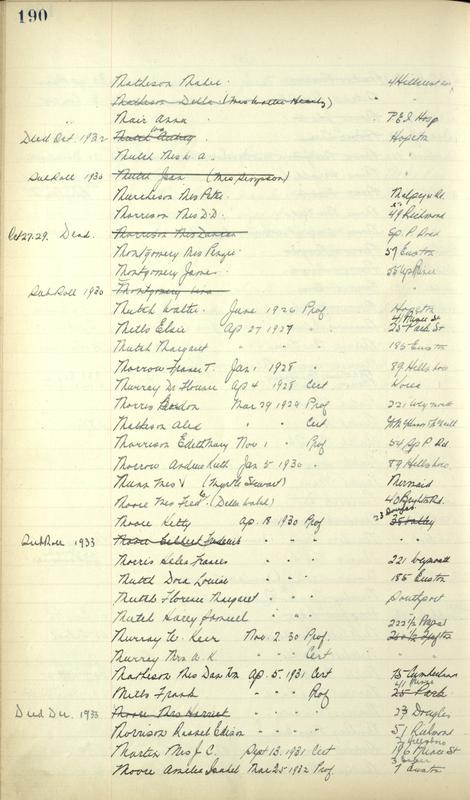 190
Matheson Mabel. 4 Hillcrest
Matheson Della (Mrs Walter Hearly) "
Mair Anna P.E.I. Hosp
Died Oct. 1932 Mutch Hopeton
Mutch Mrs W. A. "
Sub Roll 1930 Mutch Jean (Mrs Simpson) "
Murchison Mrs Peter
Morrison Mrs D.D. 49 Richmond
Oct 27.29. Dead. Morrison Mrs Duncan Up P. Road
Montgomery Mrs Penzie 57 Euston
Montgomery James 55 Up Prince
Sub Roll 1930 Montgomery "
Mutch Walter June 1926 Prof Hopeton
Mills Elsie Ap 27 1927 " 41 Prince St 25 Park St
Mutch Margaret " " " 185 Euston
Morrow Fraser T. Jan 1 1928 " 89 Hillsboro
Murray Dr Florence Ap 4 1928 Cert Korea
Morris Gordon Mar 29 1929 Prof 221 Weymouth
Matheson Alex " " Cert
Morrison Edith Mary Nov 1 " Prof 54 Up P. Rd
Morrow Andrew Keith Jan 5 1930 " 89 Hillsboro
Munn Mrs V (Myrtle Stewart) Mermaid
Moore Mrs Fred G. (Della Wahl) 40 Brighton Rd.
Moore Ketty Ap. 18 1930 Prof 23 Douglas 35 Valley
Sub Roll 1933 Moore Frederick " " " " "
Morris Helen Frances " " " 221 Weymouth
Mutch Dora Louise " " " 185 Euston
Mutch Florence Margaret " " " Southport
Mutch Harry Samuel " " "
Murray W. Keir Nov. 2 30 Prof. 222 1/2
Murray Mrs W. K. " " " Cert " "
Matheson Mrs Dan Ap. 5, 1931 Cert 75 Cumberland
Mills Frank " " " Prof 41 Prince 25 Park
Died Dec. 1933 Moore Mrs Harriet " " " 23 Douglas
Morrison Russel Edison " " " 51 Richmond
Martin Mrs J C. Sept 13, 1931 Cert Hillsboro 196 Prince St
Moore Amelia Isabel Mar 25 1932 Prof. 7 Euston